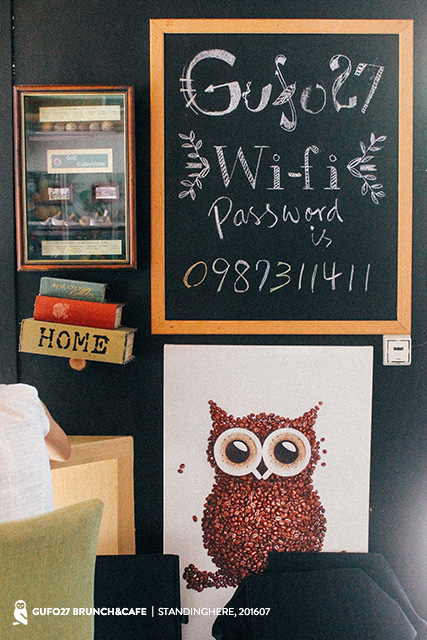 Gufo27
Wi-fi
Password
is
0987311411
Golf
Collectibles
HOME
GUFO27 BRUNCH&CAFE | STANDINGHERE, 201607